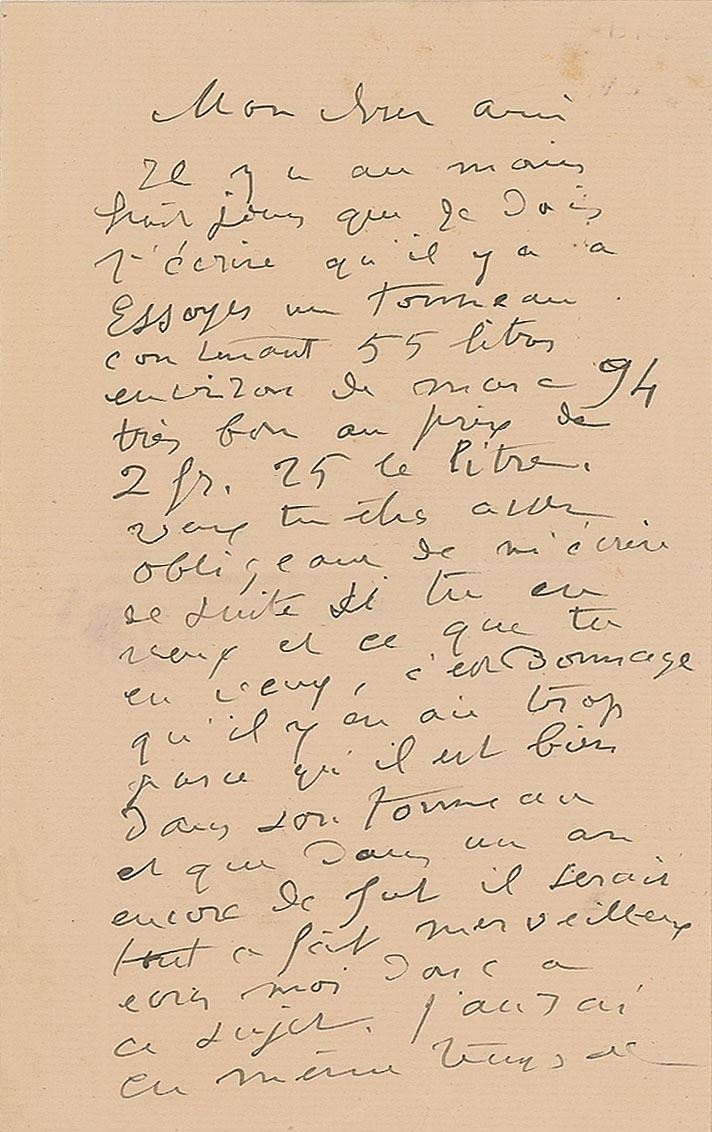 Mon cher ami
Il y a au moins
huit jours que je dois
t'écrire qu'il y a à
Essoyes un tonneau
contenant 55 litres
environ de marc 94
très bon au prix de
2 fr. 25 le litre.
veux tu être assez
obligeant de m'écrire
de suite si tu en
veux et ce que tu
en veux, c'est dommage
qu'il y en ait trop
parce qu'il est bien
dans son tonneau
et que dans un an
encore de fut il serait
tout a fait merveilleux
ecris moi donc a
ce sujet. j'aurai
en même temps de